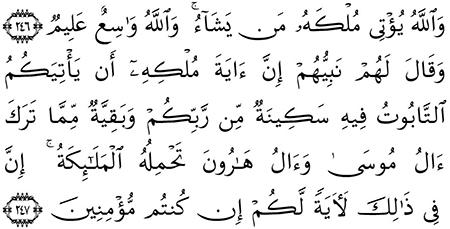 وَٱللَّهُ يُؤْتِى مُلْكَهُۥ مَن يَشَآءُ ۚ وَٱللَّهُ وَٰسِعٌ عَلِيمٌ ﴿٢٤٦﴾
وَقَالَ لَهُمْ نَبِيُّهُمْ إِنَّ ءَايَةَ مُلْكِهِۦٓ أَن يَأْتِيَكُمُ
ٱلتَّابُوتُ فِيهِ سَكِينَةٌ مِّن رَّبِّكُمْ وَبَقِيَّةٌ مِّمَّا تَرَكَ
ءَالُ مُوسَىٰ وَءَالُ هَٰرُونَ تَحْمِلُهُ ٱلْمَلَٰٓئِكَةُ ۚ إِنَّ
فِى ذَٰلِكَ لَءَايَةً لَّكُمْ إِن كُنتُم مُّؤْمِنِينَ ﴿٢٤٧﴾